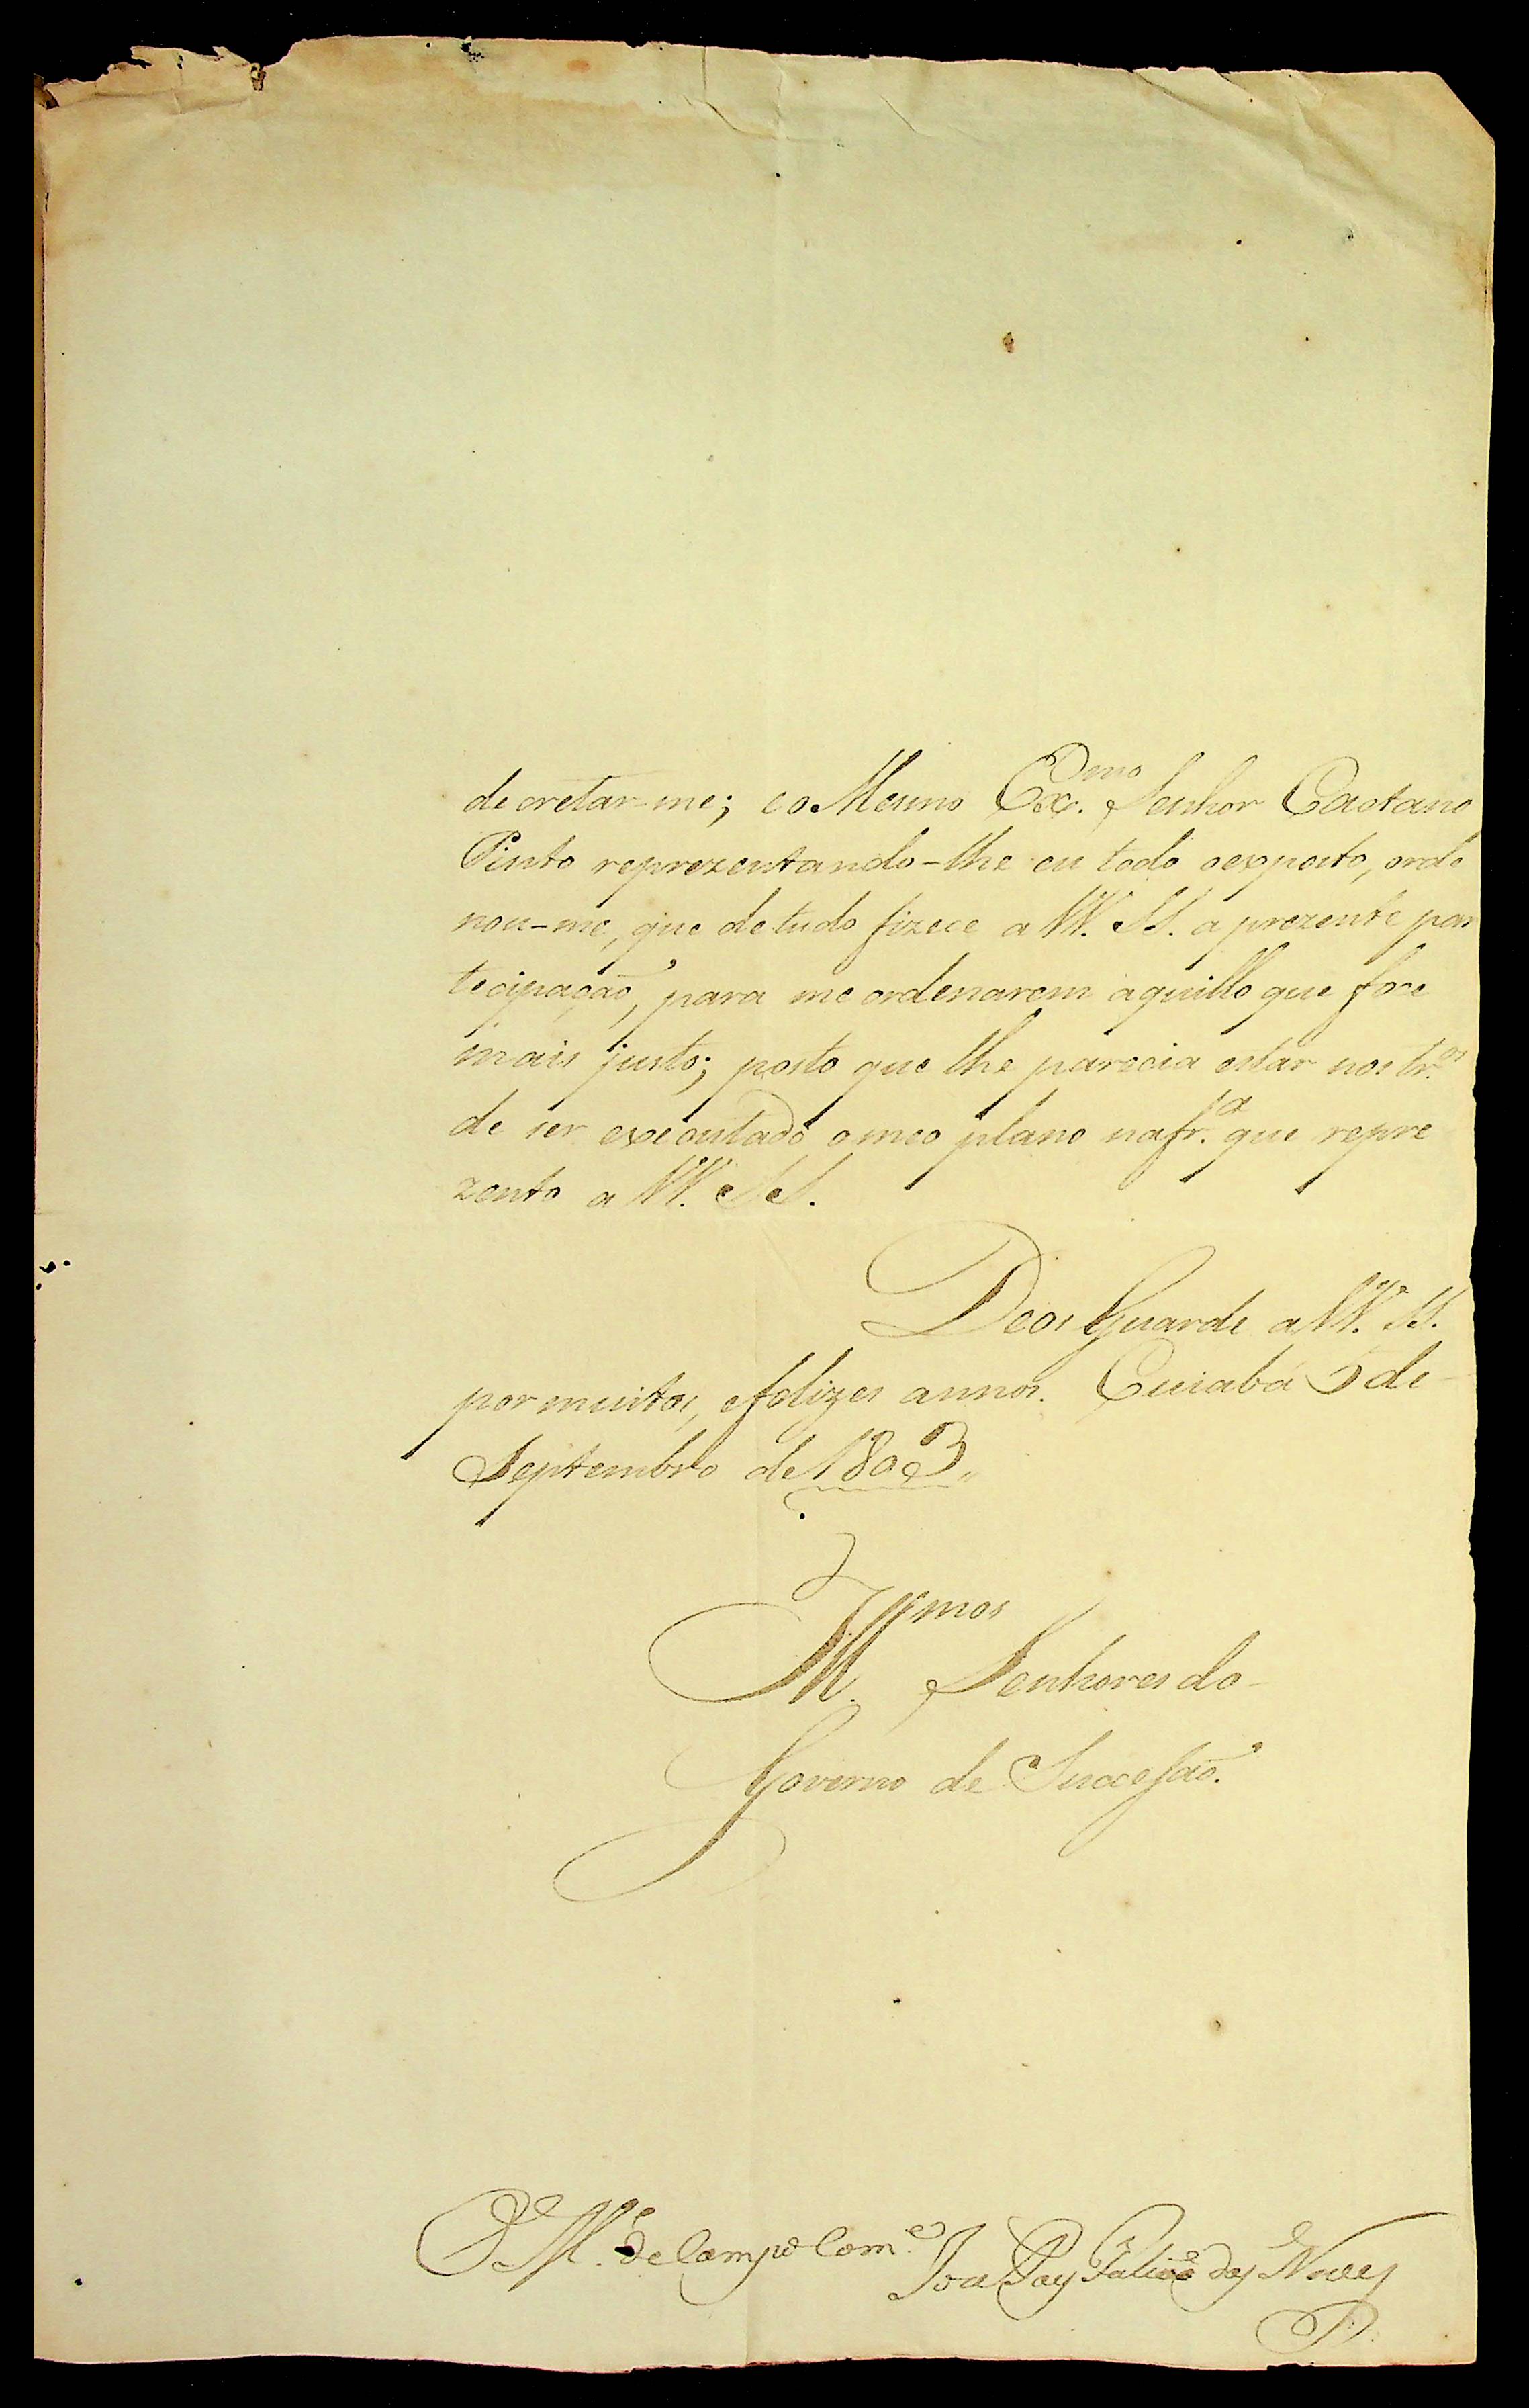 decretar-me; eo Mesmo Ex.mo Senhor Caetano
Pinto reprezentando-lhe eu todo oexposto, orde
nou-me, que detudo fizece a VV. SS. a prezente par
tecipação, para me ordenarem aquillo que foce
mais justo; posto que lhe parecia estar nos tr.os
de ser executado omeo plano nafr.a que repre
zento a VV. SS.
Deos Guarde a VV. SS.
por muitos, efelizes annos. Cuiabá 5 de
Septembro de 1803
Ill.mos Senhores do
Governo de Sucessaõ.
O M.e de Campo Com.e Joze Paes Falcaõ das Neves